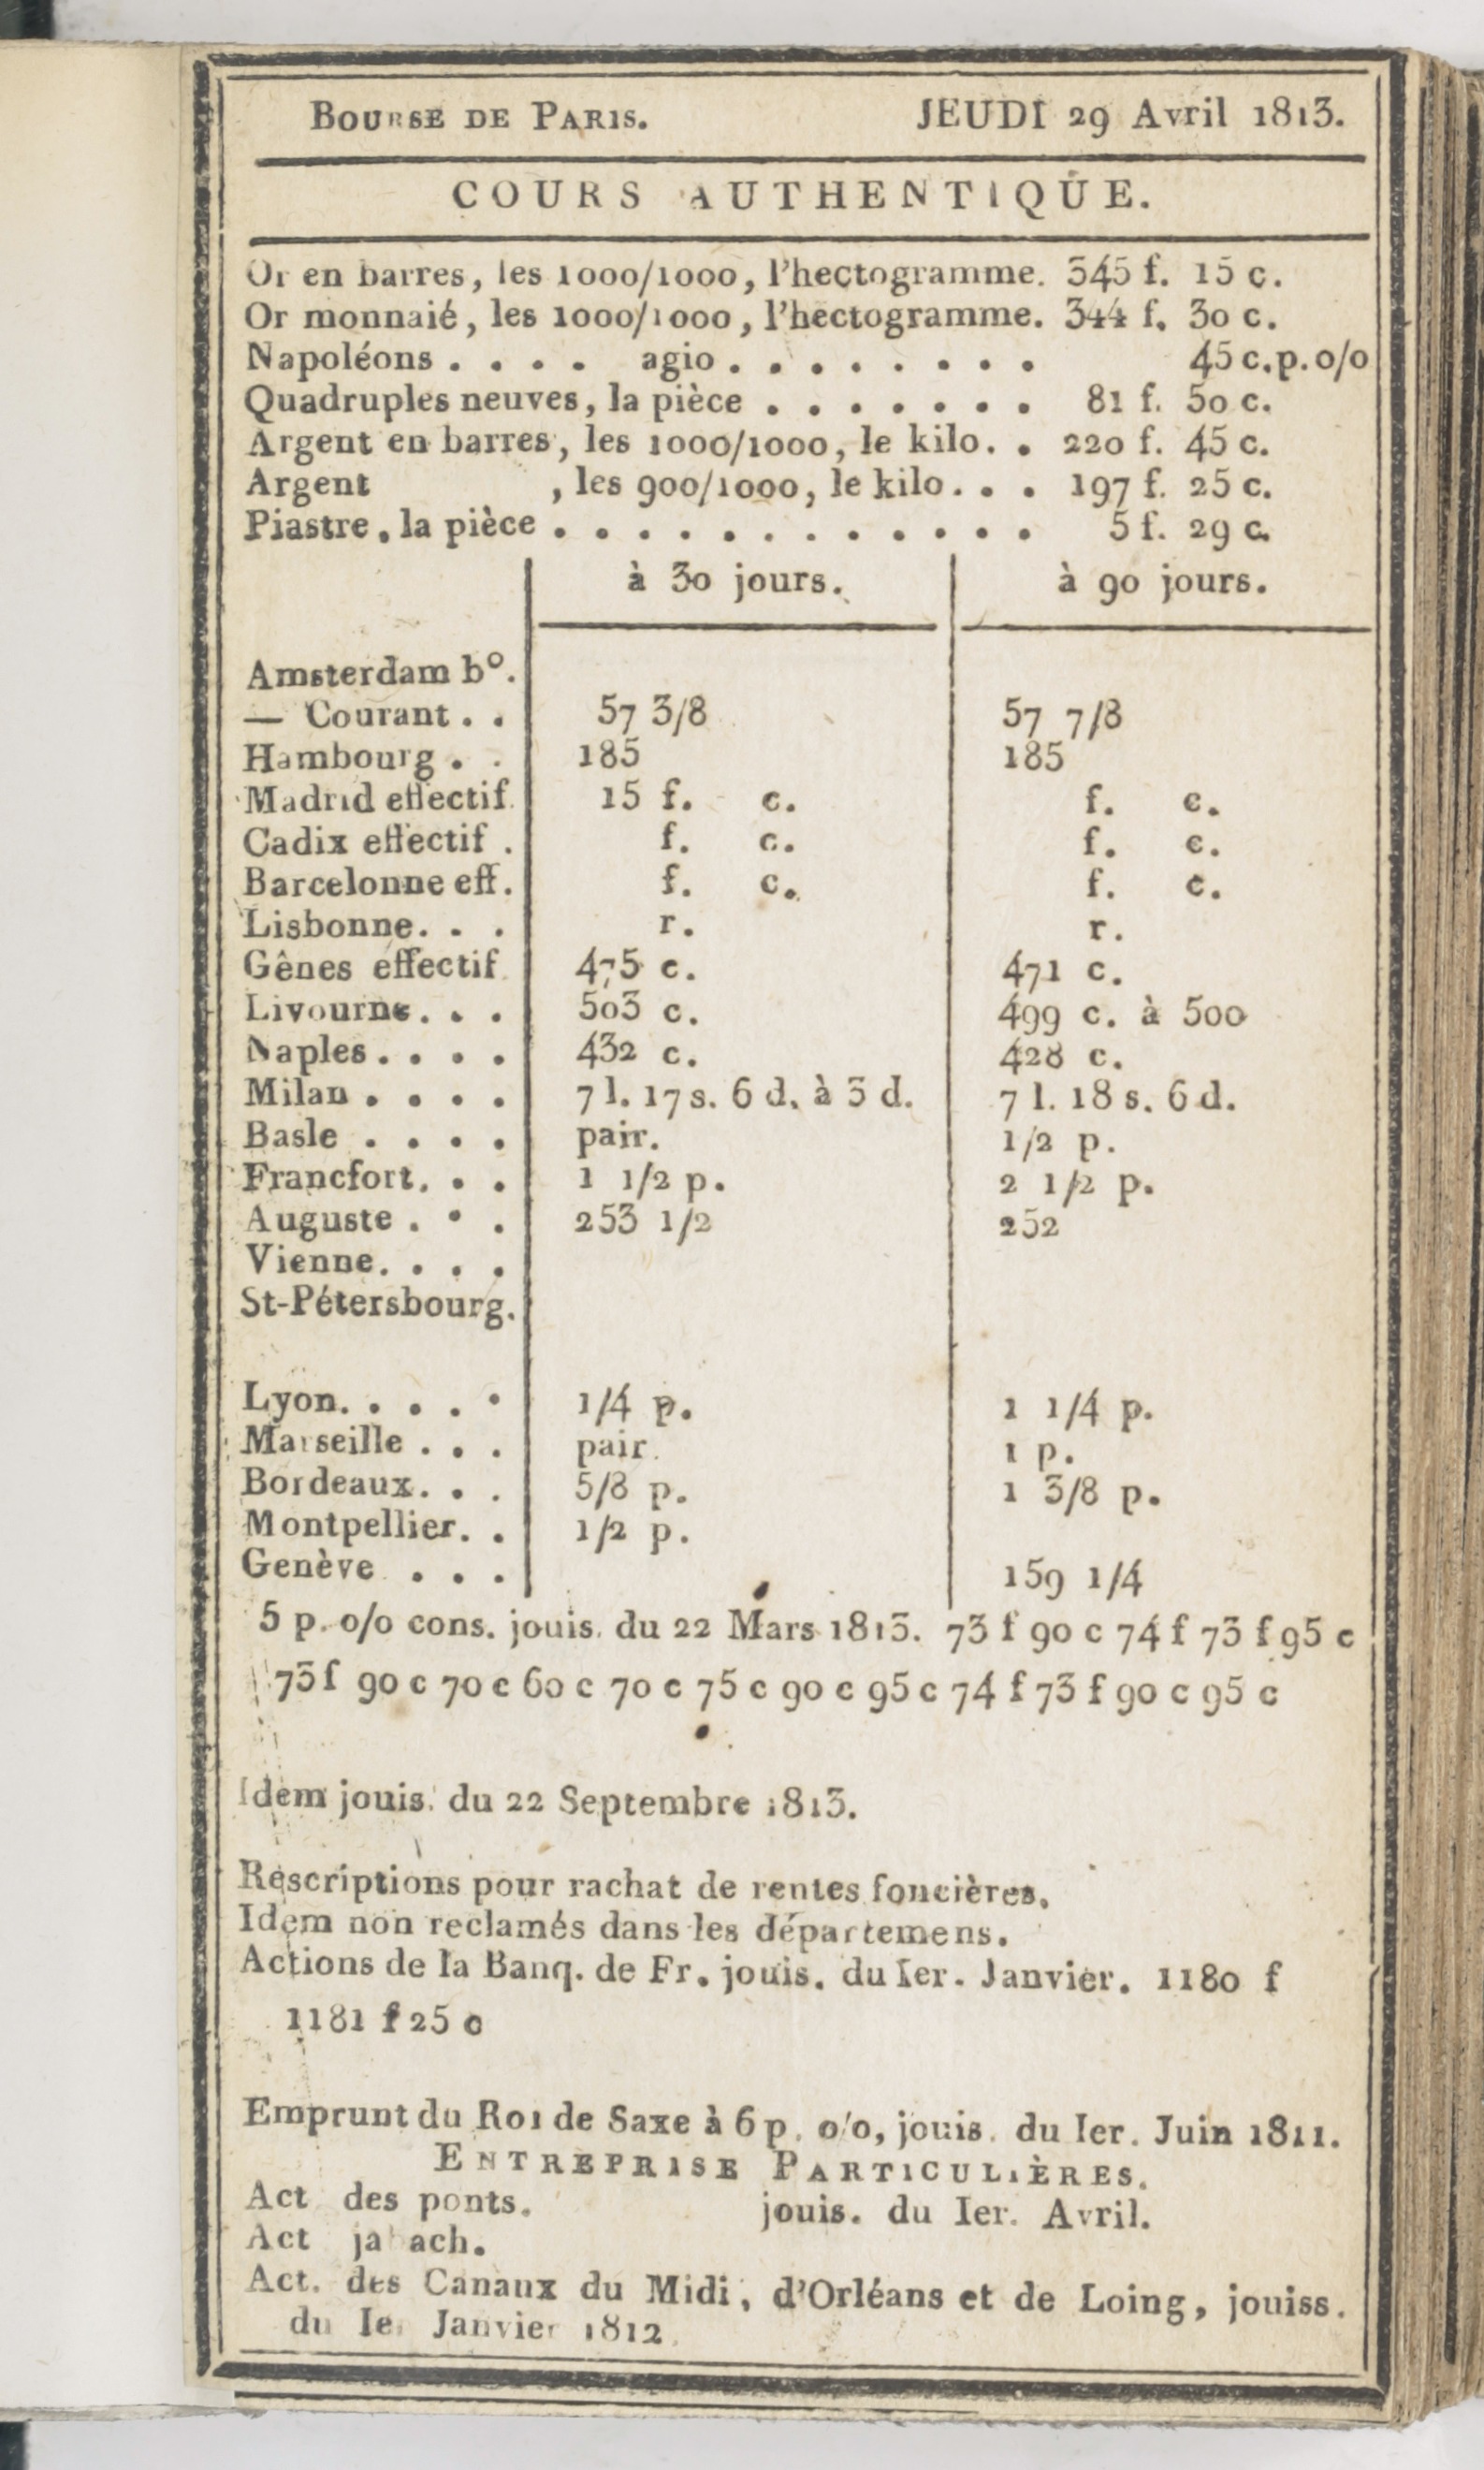 BOURSE DE PARIS. JEUDI 29 Avril 1813.
COURS AUTHENTIQUE.
Or en barres, les 1000/1000, l'hectogramme. 345 f. 15 c.
Or monnaié, les 1000/1000, l'hectogramme. 344 f. 30 c.
Napoléons . . . . agio . . . . . . . . 45 c. p. o/o
Quadruples neuves, la pièce . . . . . . . 81 f. 50 c.
Argent en barres, les 1000/1000, le kilo. . 220 f. 45 c.
Argent , les 900/1000, le kilo. . . 197 f. 25 c.
Piastre, la pièce . . . . . . . . . . . . 5 f. 29 c.
à 30 jours. à 90 jours.
Amsterdam b°.
— Courant . . 57 3/8 57 7/8
Hambourg . . 185 185
Madrid effectif. 15 f. c. f. c.
Cadix effectif . f. c. f. c.
Barcelonne eff. f. c. f. c.
Lisbonne. . . r. r.
Gênes effectif 475 c. 471 c.
Livourne. . . 503 c. 499 c. à 500
Naples . . . . 432 c. 428 c.
Milan . . . . 7 l. 17 s. 6 d. à 3 d. 7 l. 18 s. 6 d.
Basle . . . . pair. 1/2 p.
Francfort. . . 1 1/2 p. 2 1/2 p.
Auguste . . . 253 1/2 252
Vienne. . . .
St-Pétersbourg.
Lyon. . . . . 1/4 p. 1 1/4 p.
Marseille . . . pair. 1 p.
Bordeaux. . . 5/8 p. 1 3/8 p.
Montpellier. . 1/2 p.
Genève . . . 159 1/4
5 p. o/o cons. jouis. du 22 Mars 1813. 73 f 90 c 74 f 73 f 95 c
73 f 90 c 70 c 60 c 70 c 75 c 90 c 95 c 74 f 73 f 90 c 95 c
Idem jouis. du 22 Septembre 1813.
Rescriptions pour rachat de rentes foncières.
Idem non reclamés dans les départemens.
Actions de la Banq. de Fr. jouis. du Ier. Janvier. 1180 f
1181 f 25 c
Emprunt du Roi de Saxe à 6 p. o/o, jouis. du Ier. Juin 1811.
ENTREPRISE PARTICULIÈRES.
Act des ponts. jouis. du Ier. Avril.
Act ja ach.
Act. des Canaux du Midi, d'Orléans et de Loing, jouiss.
du Ie. Janvier 1812.